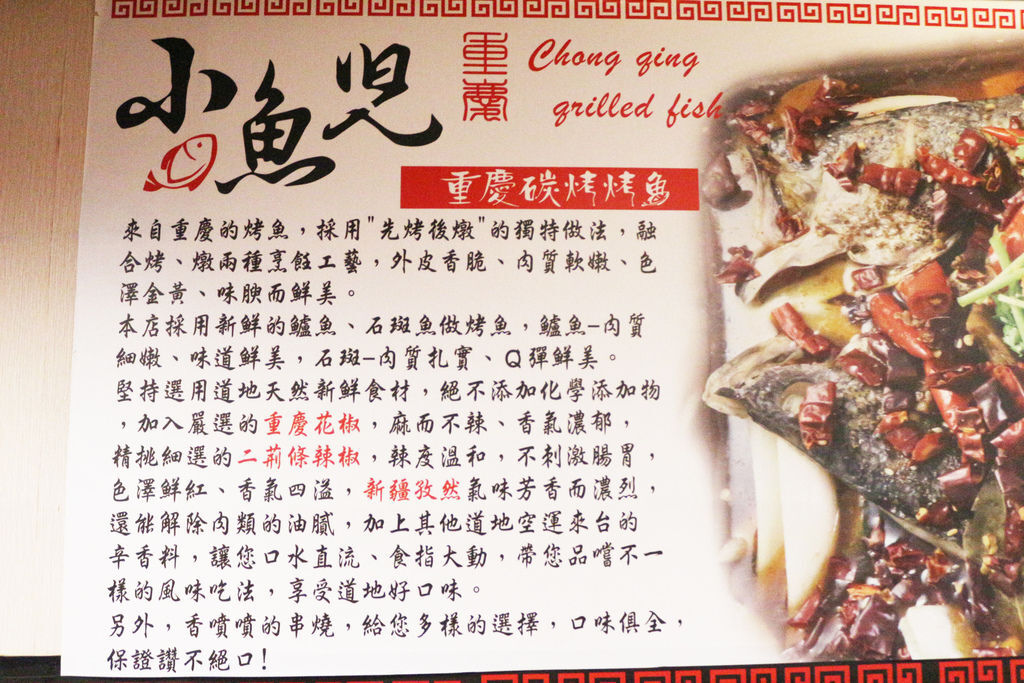 小魚兒
重慶
Chong qing
grilled fish
重慶碳烤烤魚
來自重慶的烤魚，採用"先烤後燉"的獨特做法，融
合烤、燉兩種烹飪工藝，外皮香脆、肉質軟嫩、色
澤金黃、味腴而鮮美。
本店採用新鮮的鱸魚、石斑魚做烤魚，鱸魚-肉質
細嫩、味道鮮美，石斑-肉質扎實、Q彈鮮美。
堅持選用道地天然新鮮食材，絕不添加化學添加物
，加入嚴選的重慶花椒，麻而不辣、香氣濃郁，
精挑細選的二荊條辣椒，辣度溫和，不刺激腸胃，
色澤鮮紅、香氣四溢，新疆孜然氣味芳香而濃烈，
還能解除肉類的油膩，加上其他道地空運來台的
辛香料，讓您口水直流、食指大動，帶您品嚐不一
樣的風味吃法，享受道地好口味。
另外，香噴噴的串燒，給您多樣的選擇，口味俱全，
保證讚不絕口!